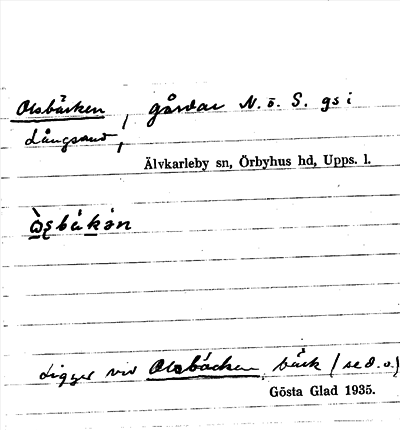 Olsbäcken, gårdar N. o. S. gs i
Långsand,
Älvkarleby sn, Örbyhus hd, Upps. l.
Ligger vid Olsbäcken, bäck (se d. o.)
Gösta Glad 1935.